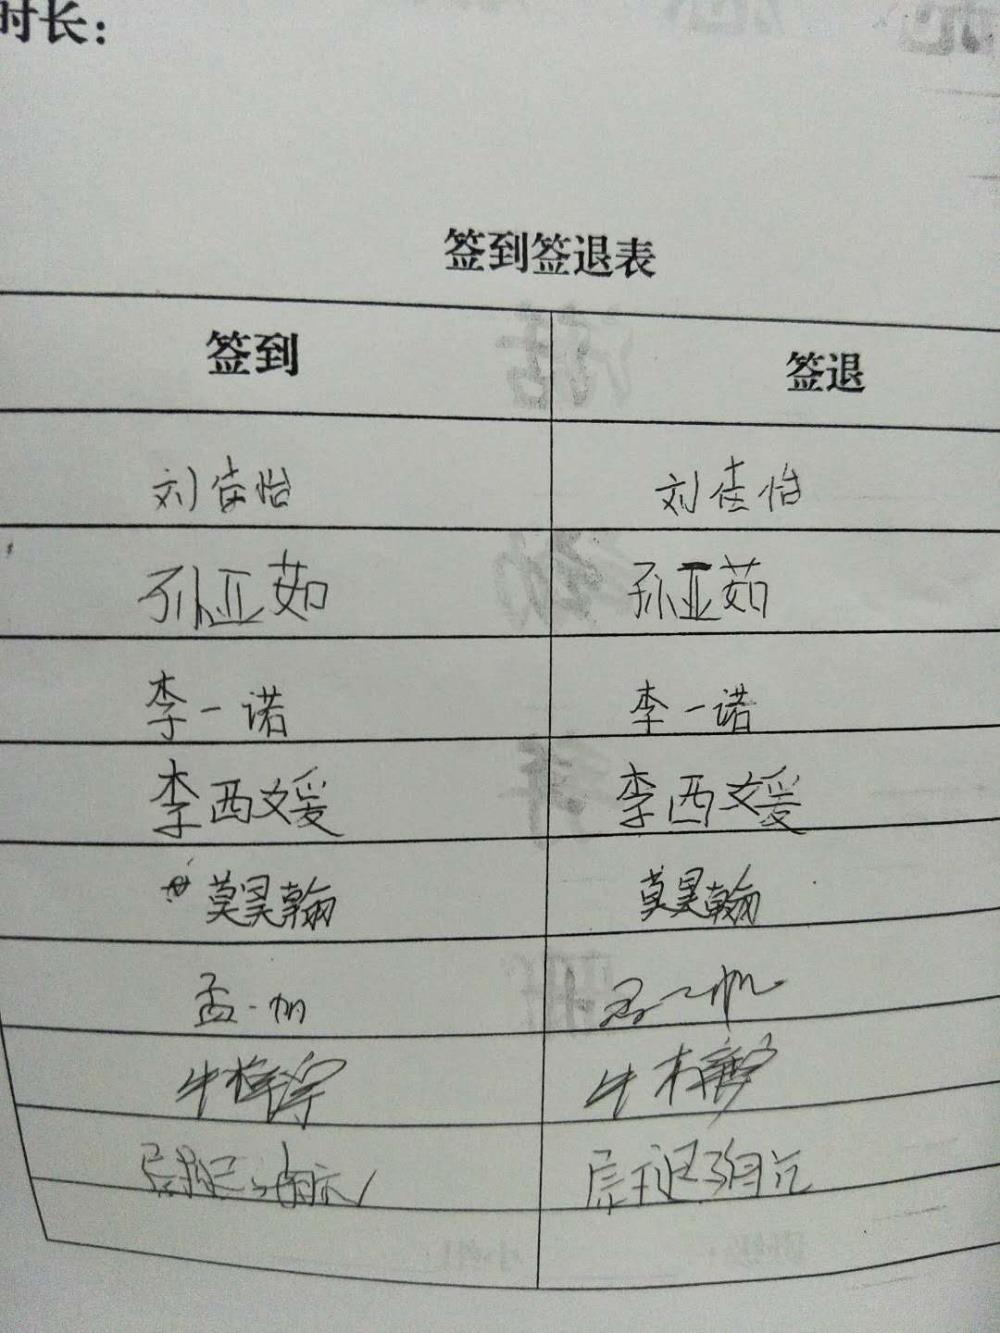 时长：
签到签退表
签到 签退
刘佳怡 刘佳怡
孙亚茹 孙亚茹
李一诺 李一诺
李西媛 李西媛
莫昊翰 莫昊翰
孟一帆 孟一帆
牛梓 牛梓